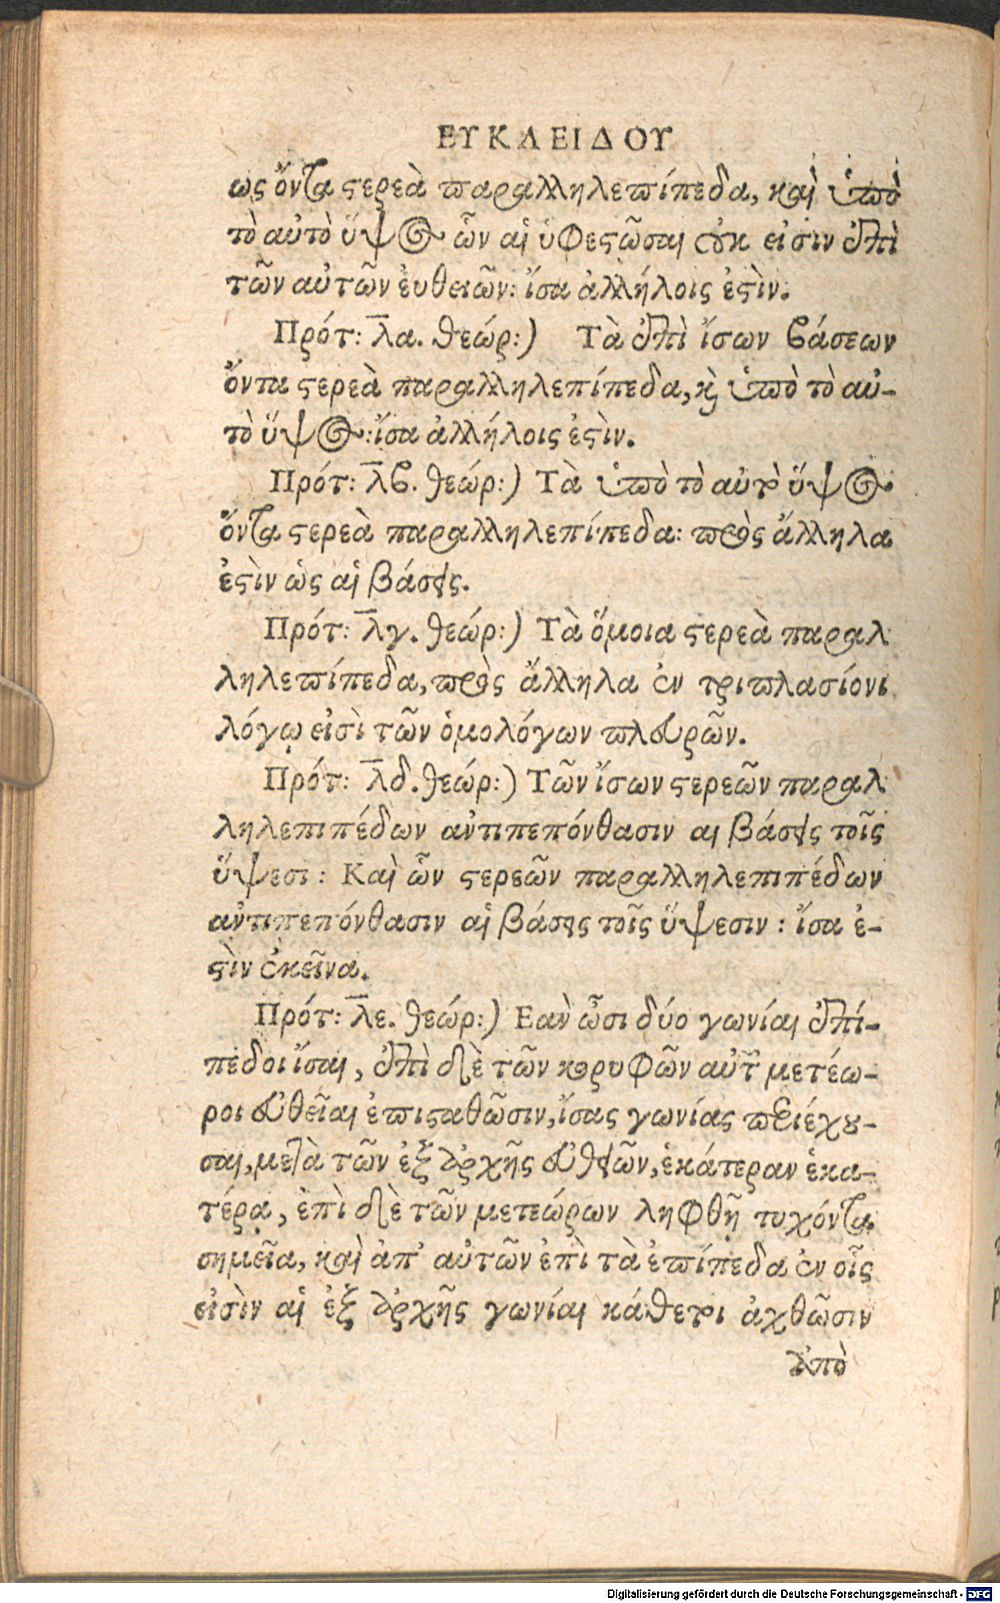 ΕΥΚΛΕΙΔΟΥ
ως ὄντα στερεὰ παραλληλεπίπεδα, καὶ ὑπὸ
τὸ αὐτὸ ὕψος ὧν αἱ ὑφεστῶσαι οὐκ εἰσιν ἐπὶ
τῶν αὐτῶν ἐυθειῶν: ἴσα ἀλλήλοις ἐστὶν.
Πρότ: λα. θεώρ:) Τὰ ἐπὶ ἴσων βάσεων
ὄντα στερεὰ παραλληλεπίπεδα, καὶ ὑπὸ τὸ αὐ-
τὸ ὕψος: ἴσα ἀλλήλοις ἐστὶν.
Πρότ: λβ. θεώρ:) Τὰ ὑπὸ τὸ αὐτὸ ὕψος
ὄντα στερεὰ παραλληλεπίπεδα: πρὸς ἄλληλα
ἐστὶν ὡς αἱ βάσεις.
Πρότ: λγ. θεώρ:) Τὰ ὅμοια στερεὰ παραλ
ληλεπίπεδα, πρὸς ἄλληλα ἐν τριπλασίονι
λόγῳ εἰσὶ τῶν ὁμολόγων πλευρῶν.
Πρότ: λδ. θεώρ:) Τῶν ἴσων στερεῶν παραλ
ληλεπιπέδων ἀντιπεπόνθασιν αι βάσεις τοῖς
ὕψεσι: Καὶ ὧν στερεῶν παραλληλεπιπέδων
ἀντιπεπόνθασιν αἱ βάσεις τοῖς ὕψεσιν: ἴσα ἐ-
στὶν ἐκεῖνα.
Πρότ: λε. θεώρ:) Εὰν ὦσι δύο γωνίαι ἐπί-
πεδοι ἴσαι, ἐπὶ δὲ τῶν κορυφῶν αὐτῶν μετέω-
ροι εὐθεῖαι ἐπισταθῶσιν, ἴσας γωνίας περιέχου-
σαι, μετὰ τῶν ἐξ ἀρχῆς εὐθειῶν, ἑκάτεραν ἑκα-
τέρᾳ, ἐπὶ δὲ τῶν μετεώρων ληφθῇ τυχόντα
σημεῖα, καὶ ἀπ' αὐτῶν ἐπὶ τὰ ἐπίπεδα ἐν οἷς
εἰσὶν αἱ ἐξ ἀρχῆς γωνίαι κάθετοι ἀχθῶσιν
ἀπὸ
Digitalisierung gefördert durch die Deutsche Forschungsgemeinschaft - DFG